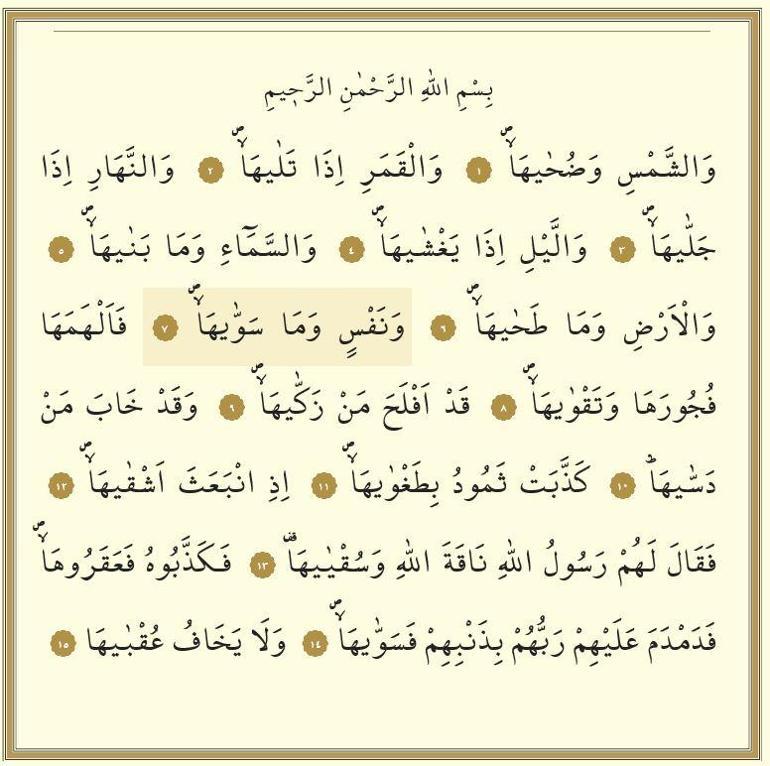 بِسْمِ اللّٰهِ الرَّحْمٰنِ الرَّح۪يمِ
وَالشَّمْسِ وَضُحٰيهَاۙۖ ١ وَالْقَمَرِ اِذَا تَلٰيهَاۙۖ ٢ وَالنَّهَارِ اِذَا
جَلّٰيهَاۙۖ ٣ وَالَّيْلِ اِذَا يَغْشٰيهَاۙۖ ٤ وَالسَّمَٓاءِ وَمَا بَنٰيهَاۙۖ ٥
وَالْاَرْضِ وَمَا طَحٰيهَاۙۖ ٦ وَنَفْسٍ وَمَا سَوّٰيهَاۙۖ ٧ فَاَلْهَمَهَا
فُجُورَهَا وَتَقْوٰيهَاۙۖ ٨ قَدْ اَفْلَحَ مَنْ زَكّٰيهَاۙۖ ٩ وَقَدْ خَابَ مَنْ
دَسّٰيهَاۜ ١٠ كَذَّبَتْ ثَمُودُ بِطَغْوٰيهَاۙۖ ١١ اِذِ انْبَعَثَ اَشْقٰيهَاۙۖ ١٢
فَقَالَ لَهُمْ رَسُولُ اللّٰهِ نَاقَةَ اللّٰهِ وَسُقْيٰيهَا۠ ١٣ فَكَذَّبُوهُ فَعَقَرُوهَاۙۖ
فَدَمْدَمَ عَلَيْهِمْ رَبُّهُمْ بِذَنْبِهِمْ فَسَوّٰيهَاۙۖ ١٤ وَلَا يَخَافُ عُقْبٰيهَا ١٥